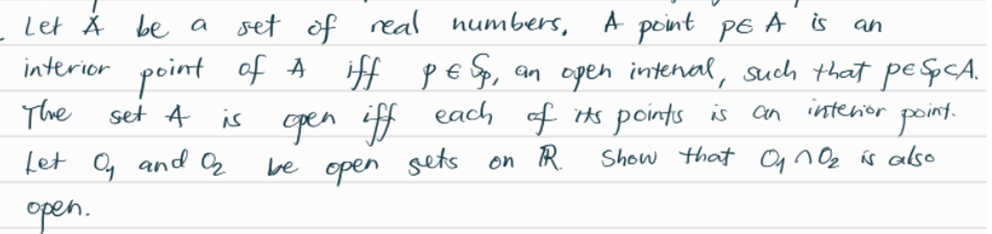 Let A be a set of real numbers, A point p∈ A is an
interior point of A iff p ∈ Sp, an open interval, such that p∈Sp⊂A.
The set A is open iff each of its points is an interior point.
Let O₁ and O₂ be open sets on ℝ. Show that O₁ ∩ O₂ is also
open.